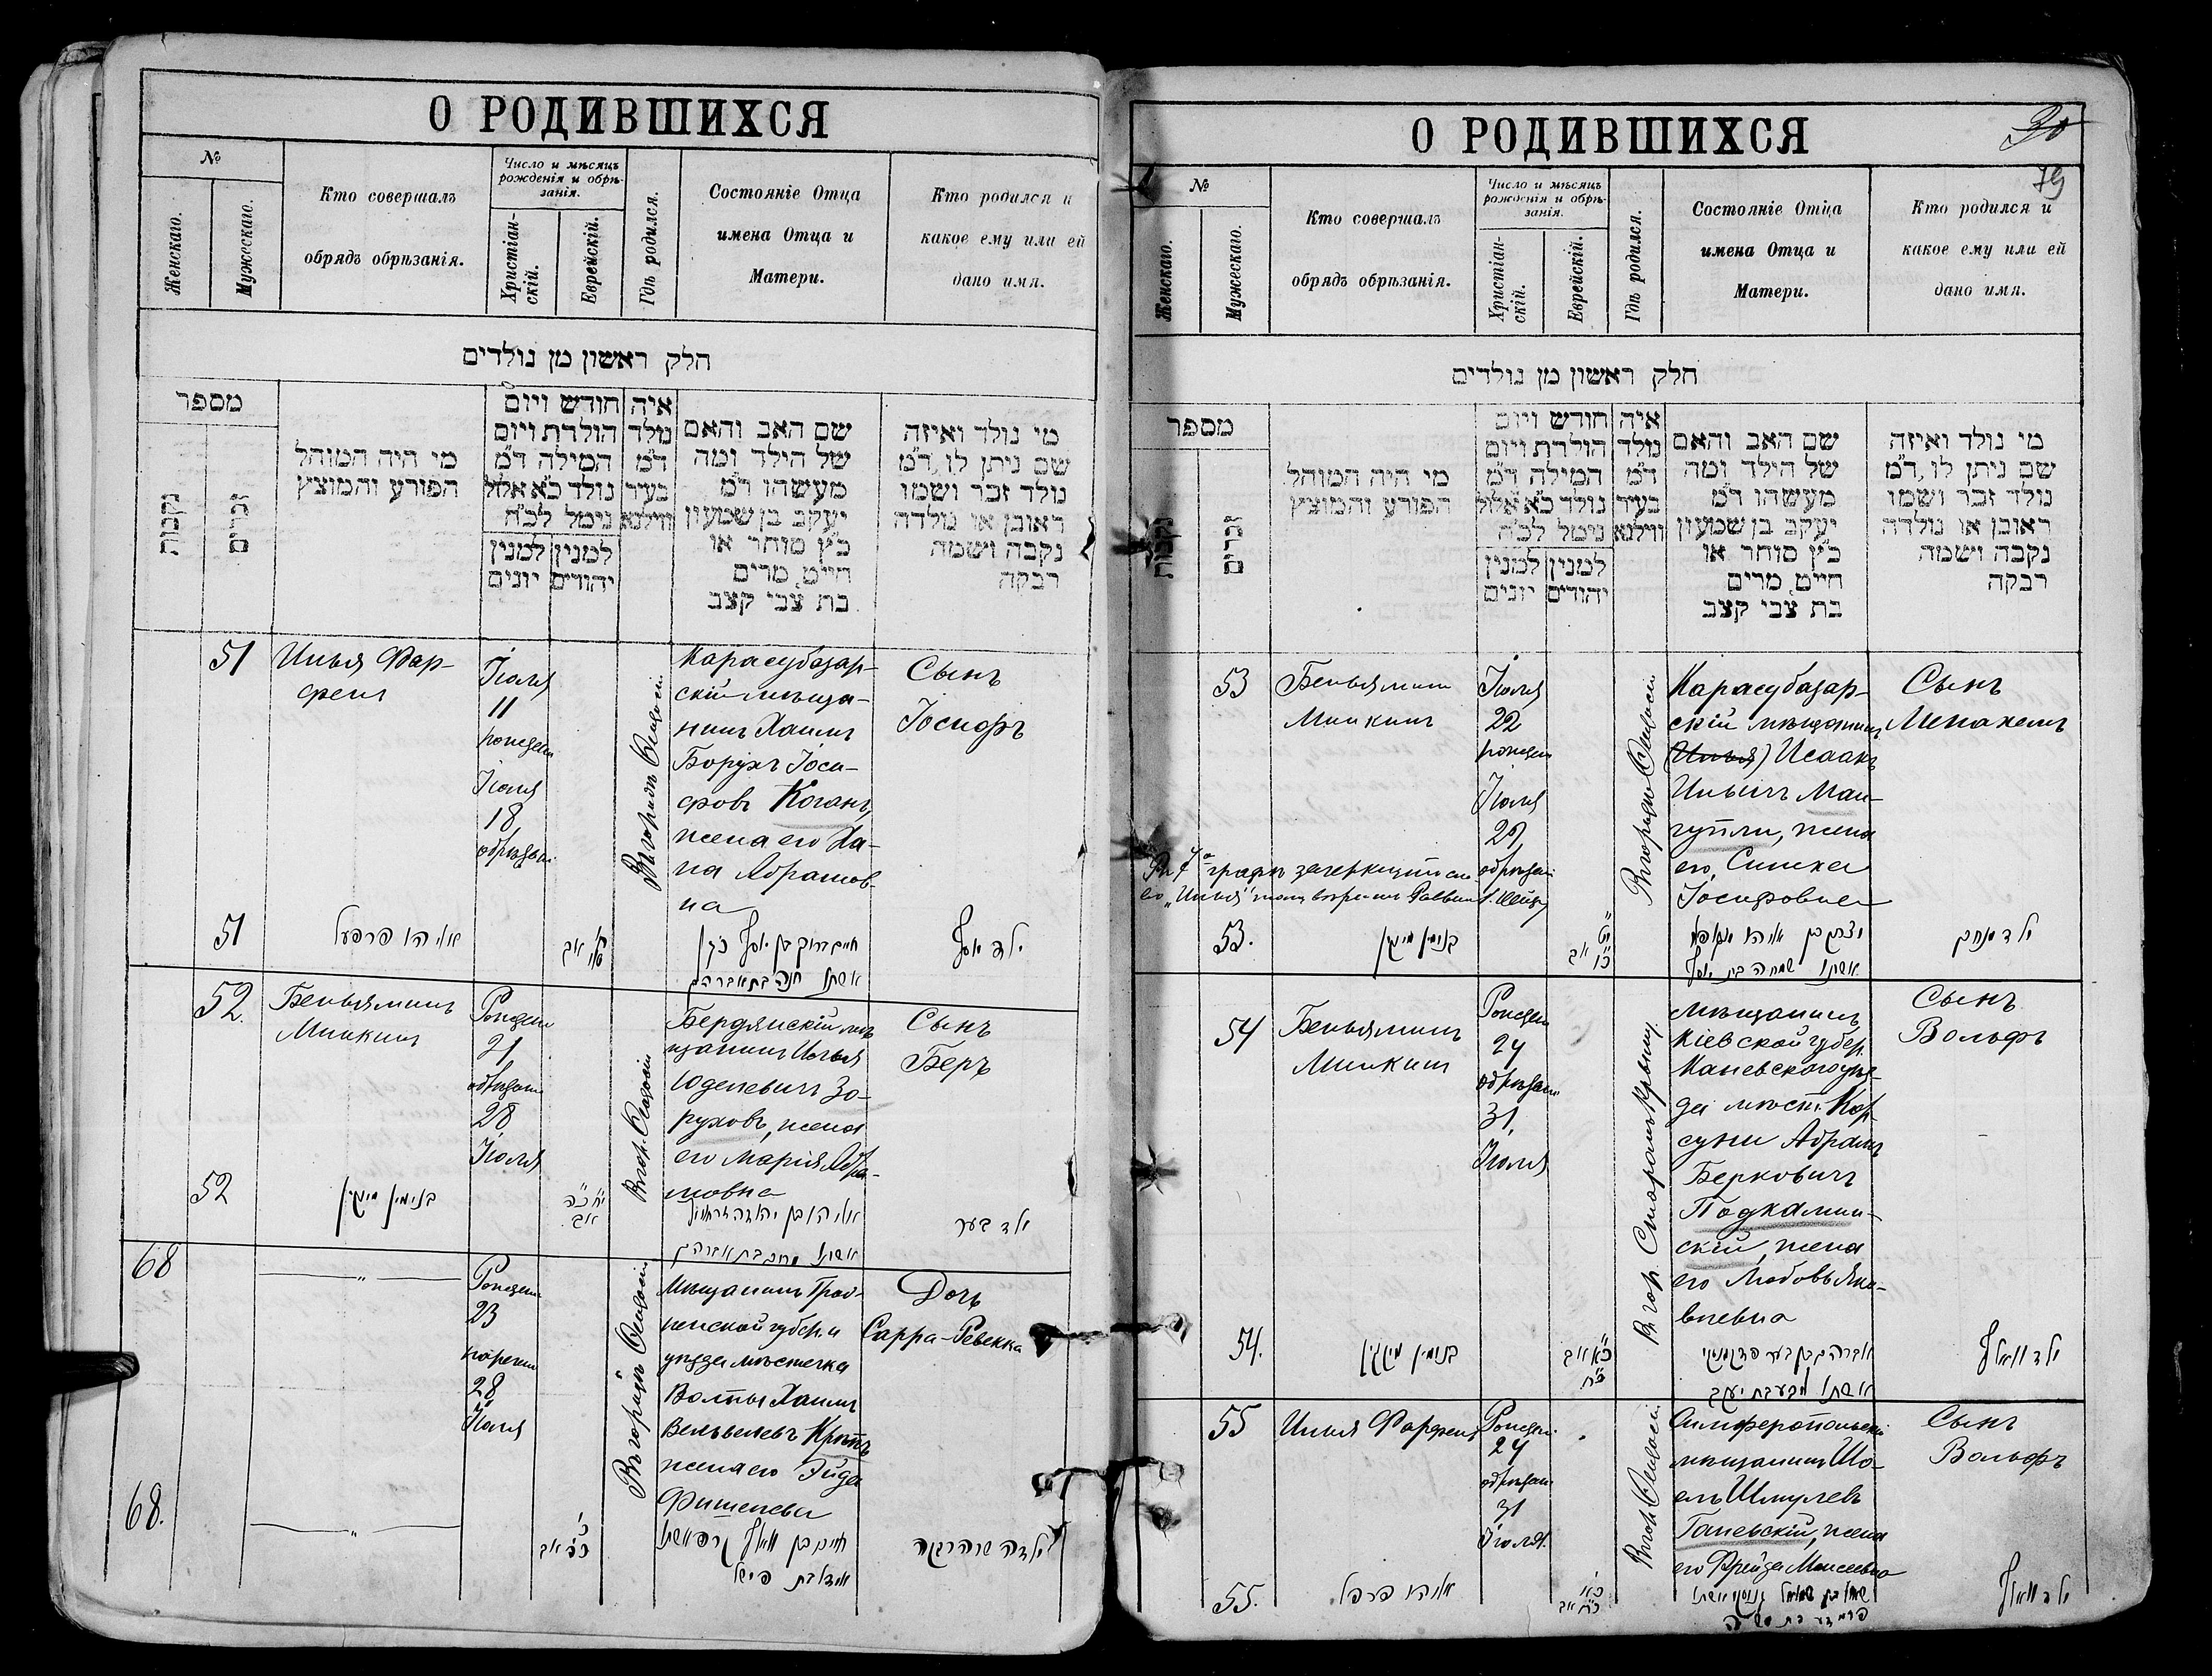 О РОДИВШИХСЯ
№
Женскаго.
Мужескаго.
Кто совершалъ
обрядъ обрѣзанія.
Число и мѣсяцъ
рожденія и обрѣ-
занія.
Христіан-
скій.
Еврейскій.
Гдѣ родился.
Состояніе Отца
имена Отца и
Матери.
Кто родился и
какое ему или ей
дано имя.
חלק ראשון מן נולדים
מספר
נקבות
זכרים
מי היה המוהל
הפורע והמוצץ
חודש ויום
הולדת ויום
המילה ד״מ
נולד כ״א אלול
נימל לכ״ח
למנין
יהודים
למנין
יונים
איה
נולד
ד״מ
בעיר
ווילנא
שם האב והאם
של הילד ומה
מעשהו ד״מ
יעקב בן שמעון
כ״ץ סוחר או
חייט, מרים
בת צבי קצב
מי נולד ואיזה
שם ניתן לו, ד״מ
נולד זכר ושמו
ראובן או נולדה
נקבה ושמה
רבקה
51
Илья Фар-
фель
Іюля
11
рожден
Іюля
18
обрѣзан
Въ городѣ Ѳеодосіи
Карасубазар-
скій мѣща-
нинъ Хаимъ
Борухъ Іоси-
фовъ Коганъ,
жена его Ха-
на Абрамов-
на
Сынъ
Іосифъ
51
אליהו פרפעל
אב
חיים ברוך בן יוסף כהן
אשתו חנה בת אברהם
ילד יוסף
52.
Беньяминъ
Минкинъ
Рожден
21
обрѣзан
28
Іюля
Въ гор. Ѳеодосіи
Бердянскій мѣ-
щанинъ Илья
Юделевичъ Зо-
руховъ, жена
его Марія Абра-
мовна
Сынъ
Беръ
52
בנימין מינקין
י״ח כ״ה
אב
אליהו בן יהודה
אשתו בת אברהם
ילד בער
68
"
Рожден
23
наречен
28
Іюля
Въ городѣ Ѳеодосіи
Мѣщанинъ Грод-
ненской губерн. и
уѣзда мѣстечка
Волпы Хаимъ
Вельвелевъ
жена его Эйдя
Фишелева
Дочь
Сарра-Ревекка
68.
"
כ׳
כ״ה אב
חיים בן וואלף אשתו
אידל בת פישל
ילדה שרה רבקה
О РОДИВШИХСЯ
30
79
№
Женскаго.
Мужескаго.
Кто совершалъ
обрядъ обрѣзанія.
Число и мѣсяцъ
рожденія и обрѣ-
занія.
Христіан-
скій.
Еврейскій.
Гдѣ родился.
Состояніе Отца
имена Отца и
Матери.
Кто родился и
какое ему или ей
дано имя.
חלק ראשון מן נולדים
מספר
נקבות
זכרים
מי היה המוהל
הפורע והמוצץ
חודש ויום
הולדת ויום
המילה ד״מ
נולד כ״א אלול
נימל לכ״ח
למנין
יהודים
למנין
יונים
איה
נולד
ד״מ
בעיר
ווילנא
שם האב והאם
של הילד ומה
מעשהו ד״מ
יעקב בן שמעון
כ״ץ סוחר או
חייט, מרים
בת צבי קצב
מי נולד ואיזה
שם ניתן לו, ד״מ
נולד זכר ושמו
ראובן או נולדה
נקבה ושמה
רבקה
53
Беньяминъ
Минкинъ
Іюля
22
рожден
Іюля
29
обрѣзан
Въ городѣ Ѳеодосіи
Карасубазар-
скій мѣщанинъ
(Илья) Исаакъ
Ильичъ Ман-
гупли, жена
его Симха
Іосифовна
Сынъ
Менахемъ
графѣ зачеркнутое сло-
во „Илья"
53.
בנימין מינקין
י״ט
כ״ו אב
יצחק בן אליהו מנגופלי
אשתו שמחה בת יוסף
ילד מנחם
54
Беньяминъ
Минкинъ
Рожден
24
обрѣзан
31,
Іюля
Въ гор. Старомъ Крыму
Мѣщанинъ
Кіевской губер.
Каневскаго уѣз-
да мѣст. Кор-
сунь Абрамъ
Берковичъ
Подкамин-
скій, жена
его Любовь Яко-
влевна
Сынъ
Вольфъ
54.
בנימין מינקין
כ״א אב
כ״ח
אברהם בן בער פדקמינסקי
אשתו ליבע בת יעקב
ילד וואלף
55
Илья Фарфель
Рожден
24
обрѣзан
31
Іюля.
Въ гор. Ѳеодосіи
Симферопольскій
мѣщанинъ Шо-
елъ Шмулевъ
Ганевскій, жена
его Фрейда Моисеевна
Сынъ
Вольфъ
55.
אליהו פרפל
כ״א
כ״ח אב
שאול בן שמואל גנבסקי אשתו
פריידע בת משה
ילד וואלף